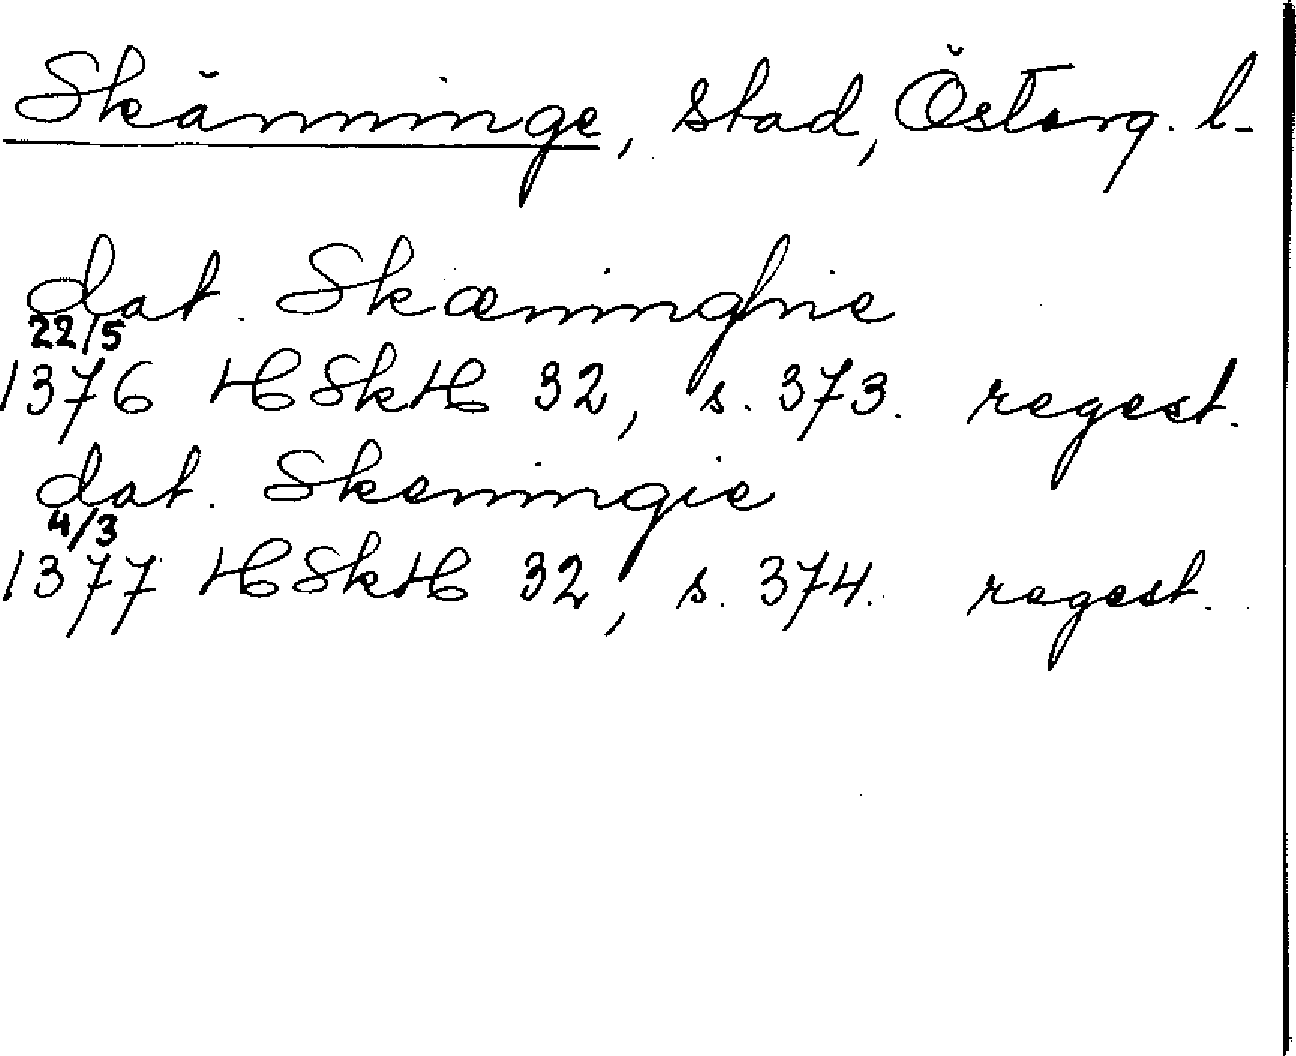 Skänninge, stad, Österg. l.
dat. Skæninghie
22/5
1376 HSkH 32, s. 373. regest.
dat. Skeningie
4/3
1377 HSkH 32, s. 374. regest.